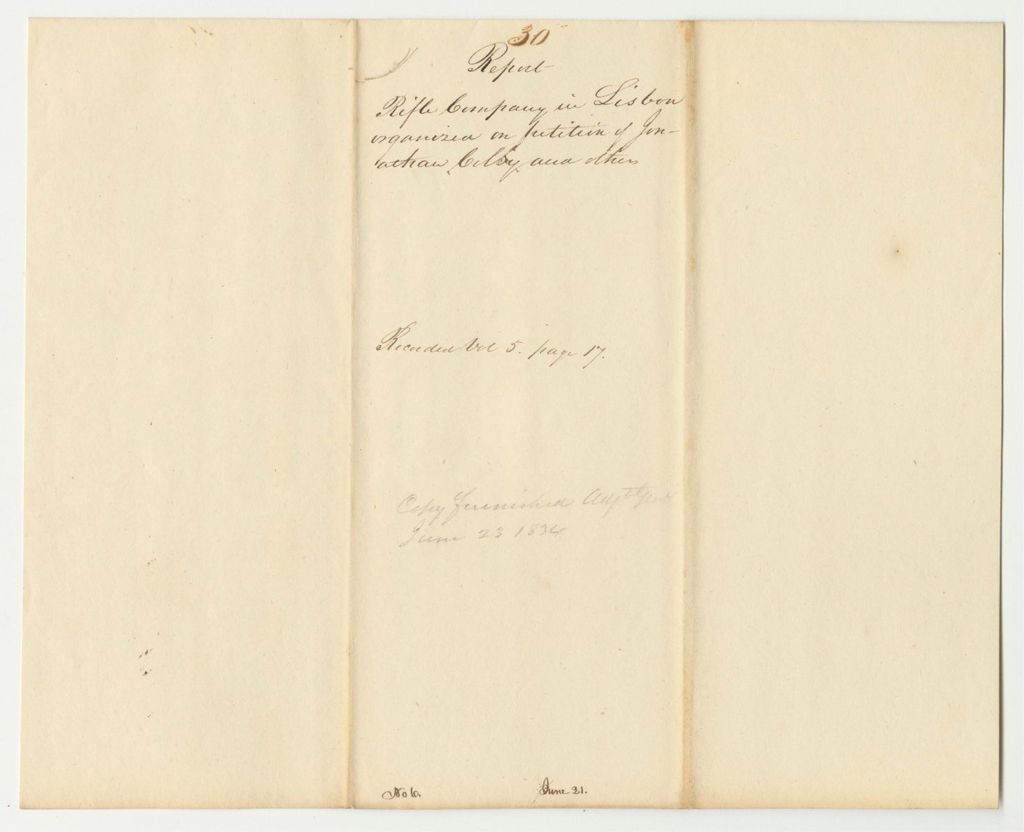 30
Report
Rifle Company in Lisbon
organized on petition of Jon-
athan Colby and others
Recorded Vol 5. page 17.
Copy furnished Adjt Gen
June 23 1834
No 6.
June 21.